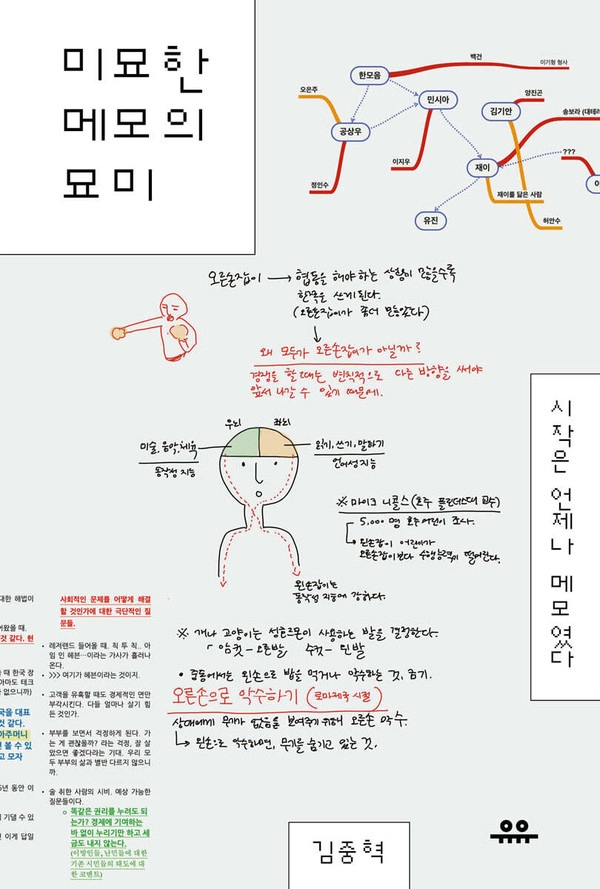 미묘한
메모의
묘미
백건
이기형 형사
한모음
오은주
민시아
양진곤
김기안
송보라 (대테러
공상우
이지우
???
재이
정인수
재이를 닮은 사람
유진
허안수
오른손잡이 → 협동을 해야 하는 상황이 많을수록
한쪽을 쓰게 된다.
(오른손잡이가 좀더 모등있다)
왜 모두가 오른손잡이가 아닐까?
경쟁을 할 때는 변칙적으로 다른 방향을 써야
앞서 나갈 수 있기 때문에.
우뇌 좌뇌
미술, 음악, 체육
동작성 지능
읽기, 쓰기, 말하기
언어성 지능
※ 마이크 니콜스 (호주 플린더스대 교수)
5,000 명 호주 어린이 조사.
왼손잡이 어린이가
오른손잡이보다 수행능력이 떨어진다.
왼손잡이는
동작성 지능에 강하다.
시작은 언제나 메모였다
대한 해법이
어왔을 때.
것 같다. 현
때 한국 장
아마도 테크
없으니까)
국을 대표
것 같다.
아주머니
변 볼 수 있
고 모자
5년 동안 이
기댈 수 있
이게 답일
사회적인 문제를 어떻게 해결
할 것인가에 대한 극단적인 질
문들.
• 레저랜드 들어올 때. 칙 투 칙.. 아
임 인 헤븐...이라는 가사가 흘러나
온다.
• >>> 여기가 헤븐이라는 것이지.
• 고객을 유혹할 때도 경제적인 면만
부각시킨다. 다들 얼마나 살기 힘
든 것인가.
• 부부를 보면서 걱정하게 된다. 가
는 게 괜찮을까? 라는 걱정, 잘 살
았으면 좋겠다라는 기대. 우리 모
두 부부의 삶과 별반 다르지 않으니
까.
• 술 취한 사람의 시비. 예상 가능한
질문들이다.
○ 똑같은 권리를 누려도 되
는가? 경제에 기여하는
바 없이 누리기만 하고 세
금도 내지 않는다.
(이방인들, 난민들에 대한
기존 시민들의 태도에 대
한 코멘트)
※ 개나 고양이는 성호르몬이 사용하는 발을 결정한다.
암컷 - 오른발 수컷 - 왼발
• 중동에서는 왼손으로 밥을 먹거나 악수하는 것, 금기.
오른손으로 악수하기 (로마제국 시절)
상대에게 무기가 없음을 보여주기 위해 오른손 악수.
↳ 왼손으로 악수하면, 무기를 숨기고 있는 것.
김중혁